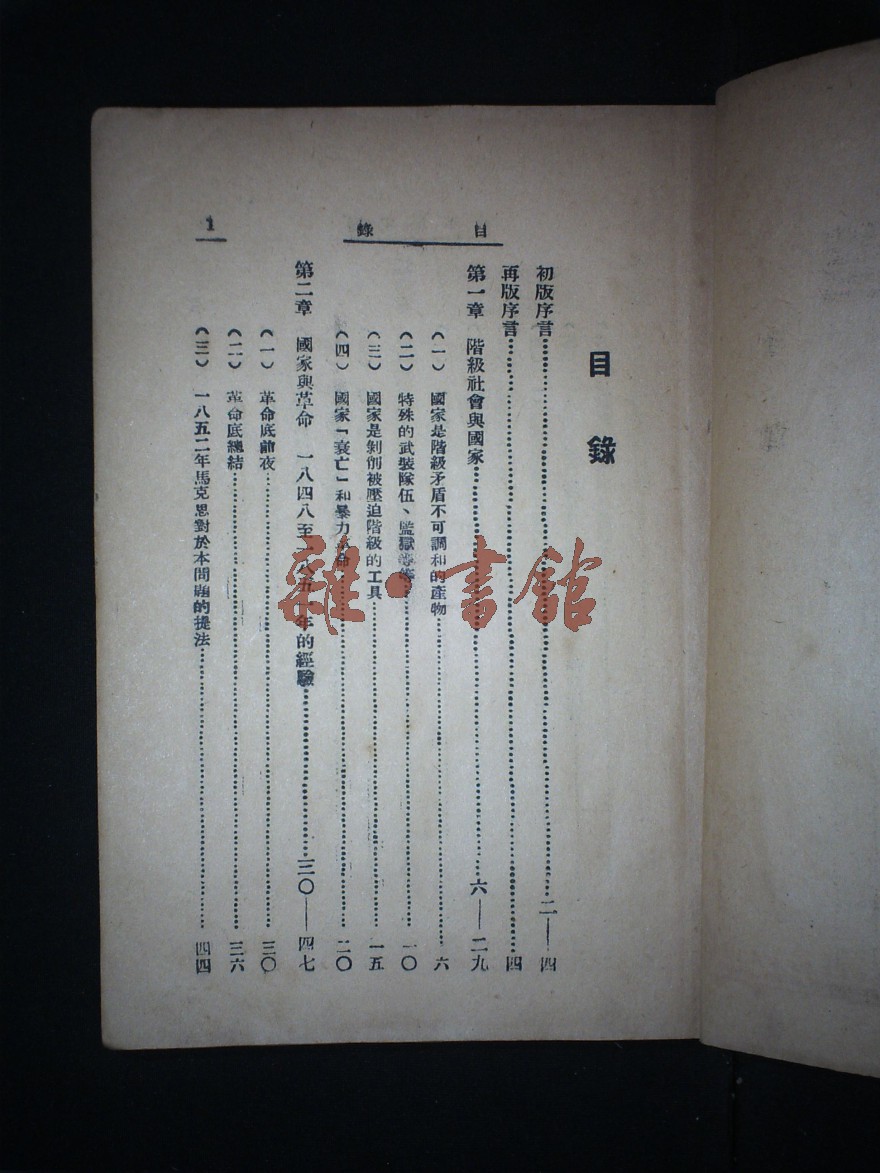 目錄
1
目錄
初版序言……二—四
再版序言……四
第一章 階級社會與國家……六—二九
(一) 國家是階級矛盾不可調和的產物……六
(二) 特殊的武裝隊伍、監獄等等……一〇
(三) 國家是剝削被壓迫階級的工具……一五
(四) 國家「衰亡」和暴力革命……二〇
第二章 國家與革命 一八四八至一八五一年的經驗……三〇—四七
(一) 革命底前夜……三〇
(二) 革命底總結……三六
(三) 一八五二年馬克思對於本問題的提法……四四
雜·書館